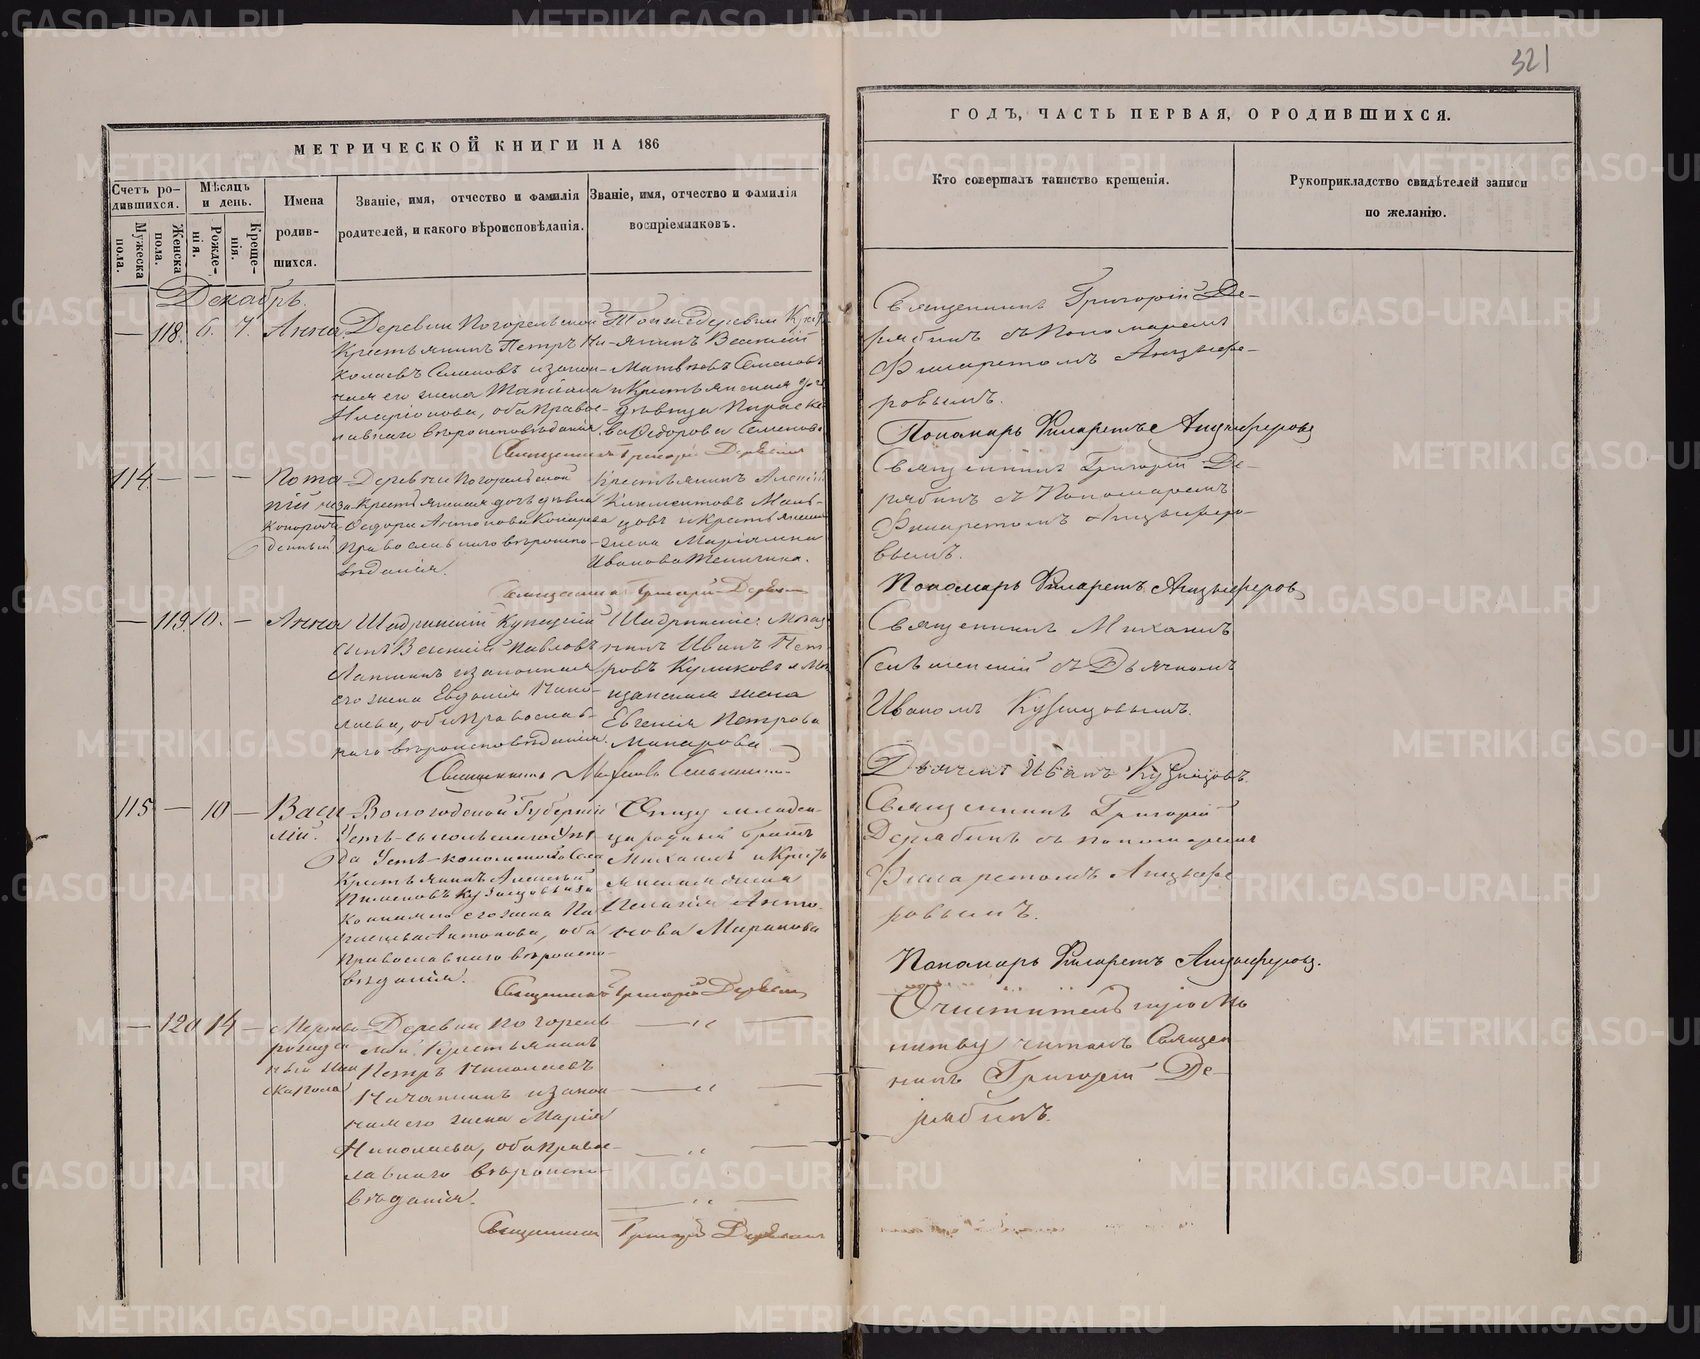 321
МЕТРИЧЕСКОЙ КНИГИ НА 186
ГОДЪ, ЧАСТЬ ПЕРВАЯ, О РОДИВШИХСЯ.
Счетъ ро-
дившихся.
Мужеска
пола.
Женска
пола.
Мѣсяцъ
и день.
Рожде-
нія.
Креще-
нія.
Имена
родив-
шихся.
Званіе, имя, отчество и фамилія
родителей, и какого вѣроисповѣданія.
Званіе, имя, отчество и фамилія
воспріемниковъ.
Кто совершалъ таинство крещенія.
Рукоприкладство свидѣтелей записи
по желанію.
Декабрь.
— 118. 6. 7. Анна
Деревни Погорельской
Крестьянинъ Петръ Ни-
колаевъ Семеновъ и закон-
ная его жена Татіана
Иларіонова, оба право-
славнаго вѣроисповѣданія.
Тойже деревни Крес
янинъ Василій
Матвѣевъ Семеновъ
и Крестьянская доч
дѣвица Параске
ва Ѳедорова Семенова
Священникъ Григорій Дерябинъ
Священникъ Григорій Де-
рябинъ съ Пономаремъ
Филаретомъ Анцыфе-
ровымъ.
Пономарь Филаретъ Анцыферовъ
114 — — — Пота
пій неза
конорож-
денный
Деревни Погорельской
Крестьянская дочь дѣвка
Ѳедора Антонова
Православнаго вѣроиспо-
вѣданія.
Крестьянинъ Алексѣй
Климентовъ
и Крестьянская
жена Маріамна
Иванова
Священникъ Григорій Дерябинъ
Священникъ Григорій Де-
рябинъ съ Пономаремъ
Филаретомъ Анцыферо-
вымъ.
Пономарь Филаретъ Анцыферовъ
— 119. 10. — Анна
Шадринскій Купеческій
сынъ Василій Павловъ
Лапинъ и законная
его жена Евдокія Нико-
лаева, оба Православ-
наго вѣроисповѣданія.
Шадринскіе: Мѣща
нинъ Иванъ Пет
ровъ Куликовъ и Мѣ
щанская жена
Евгенія Петрова
Макарова.
Священникъ Михаилъ
Священникъ Михаилъ
съ Дьячкомъ
Иваномъ Кузнецовымъ.
Дьячекъ Иванъ Кузнецовъ.
115 — 10 — Васи
лій.
Вологодской Губерніи
Усть-сысольскаго Уѣз
да Села
Крестьянинъ Алексѣй
Пименовъ Кузнецовъ и за
конная его жена Па
раскева Антонова, оба
Православнаго вѣроиспо-
вѣданія.
Отцу младен-
ца родный братъ
Михаилъ и Кресть
янская жена
Пелагія Анто-
нова Миранова
Священникъ Григорій Дерябинъ
Священникъ Григорій
Дерябинъ съ пономаремъ
Филаретомъ Анцыфе
ровымъ.
Пономарь Филаретъ Анцыферовъ.
— 120 14 — Мертво
рожден
ный жен
ска пола
Деревни Погорель
ской Крестьянинъ
Петръ Николаевъ
и закон
ная его жена Марія
Николаева, оба Право-
славнаго вѣроиспо-
вѣданія.
— " —
— " —
— " —
— " —
Священникъ Григорій Дерябинъ
Очистительную Мо
литву читалъ Священ
никъ Григорій Де-
рябинъ.